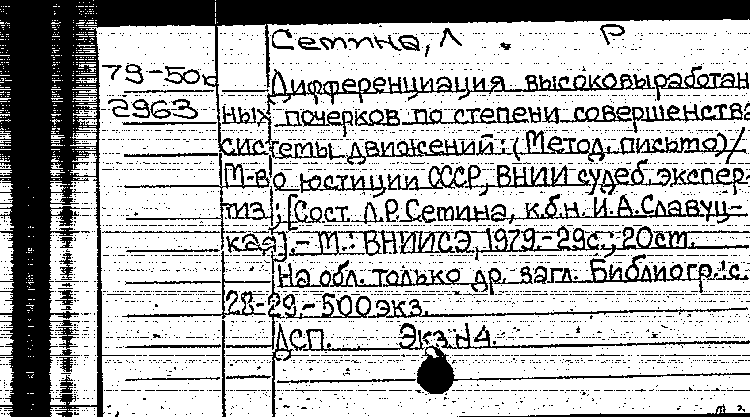 Сетина, Л. Р
79-50к Дифференциация высоковыработан
2963 ных почерков по степени совершенства
системы движений: (Метод. письмо)/
М-во юстиции СССР, ВНИИ судеб. экспер-
тиз; [Сост. Л.Р. Сетина, к.б.н. И.А. Славуц-
кая]. - М.: ВНИИСЭ, 1979. - 29с.; 20см.
На обл. только др. загл. Библиогр.: с.
28-29. - 500 экз.
ДСП. Экз.N4.